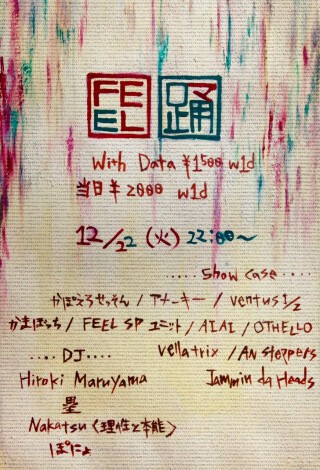 FEEL 踊
With Data ¥1500 w1d
当日 ¥2000 w1d
12/22 (火) 22:00〜
..... Show case .....
かぽえろせっそん / アメーキー / ventus 1/2
かまぼっち / FEEL SP ユニット / AIAI / OTHELLO
vellatrix / AN steppers
Jammin da Heads
.... DJ ....
Hiroki Maruyama
塁
Nakatsu〈理性と本能〉
ぽにょ